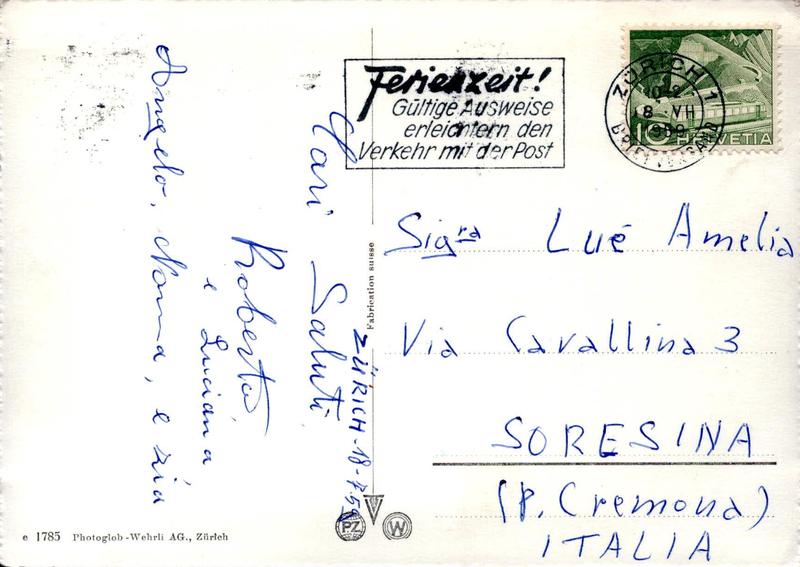 Ferienzeit!
Gültige Ausweise
erleichtern den
Verkehr mit der Post
ZÜRICH 1
8. VII
1959
BRIEFVERSAND
10 HELVETIA
Sigra Lué Amelia
Via Cavallina 3
SORESINA
(P. Cremona)
ITALIA
ZÜRICH-18-7-59
Cari Saluti
Roberta
e Luciana
Angelo, Nonna, e zia
Fabrication suisse
PZ W
e 1785 Photoglob-Wehrli AG., Zürich